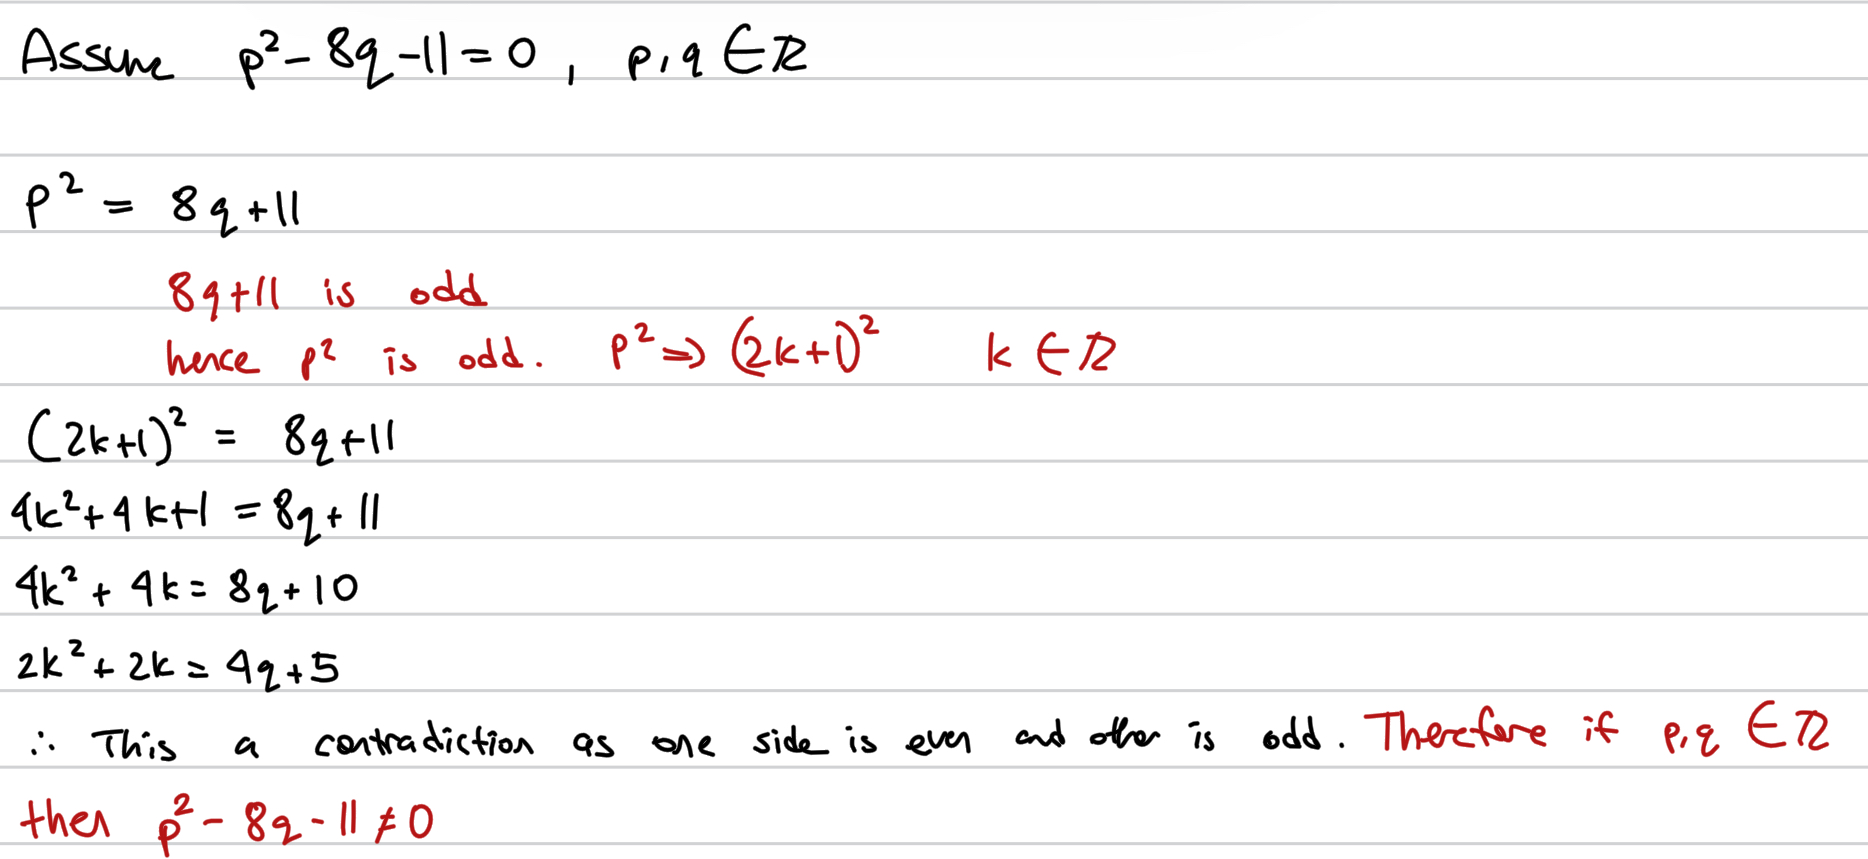 Assume p² - 8q - 11 = 0 , p, q ∈ ℤ
p² = 8q + 11
8q + 11 is odd
hence p² is odd. p² ⇒ (2k+1)² k ∈ ℤ
(2k+1)² = 8q + 11
4k² + 4k + 1 = 8q + 11
4k² + 4k = 8q + 10
2k² + 2k = 4q + 5
∴ This a contradiction as one side is even and other is odd. Therefore if p, q ∈ ℤ
then p² - 8q - 11 ≠ 0